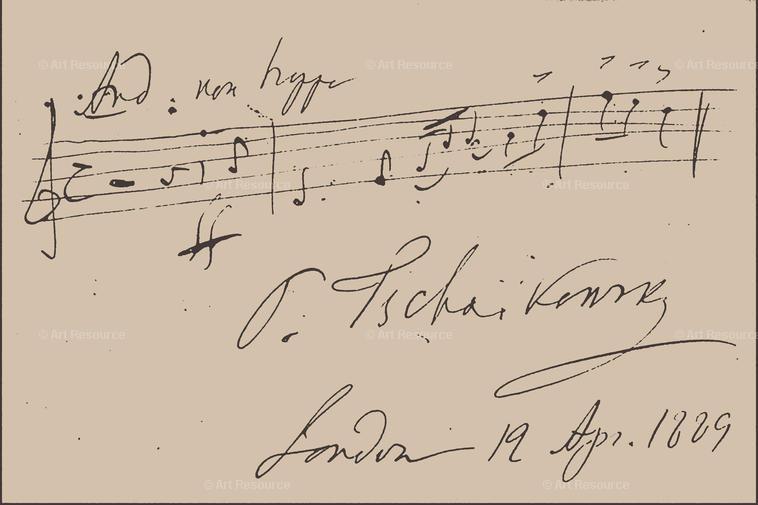 And. non troppo
ff
P. Tschaikowsky
London 19 Apr. 1889
© Art Resource © Art Resource © Art Resource
© Art Resource © Art Resource
© Art Resource © Art Resource © Art Resource
© Art Resource © Art Resource